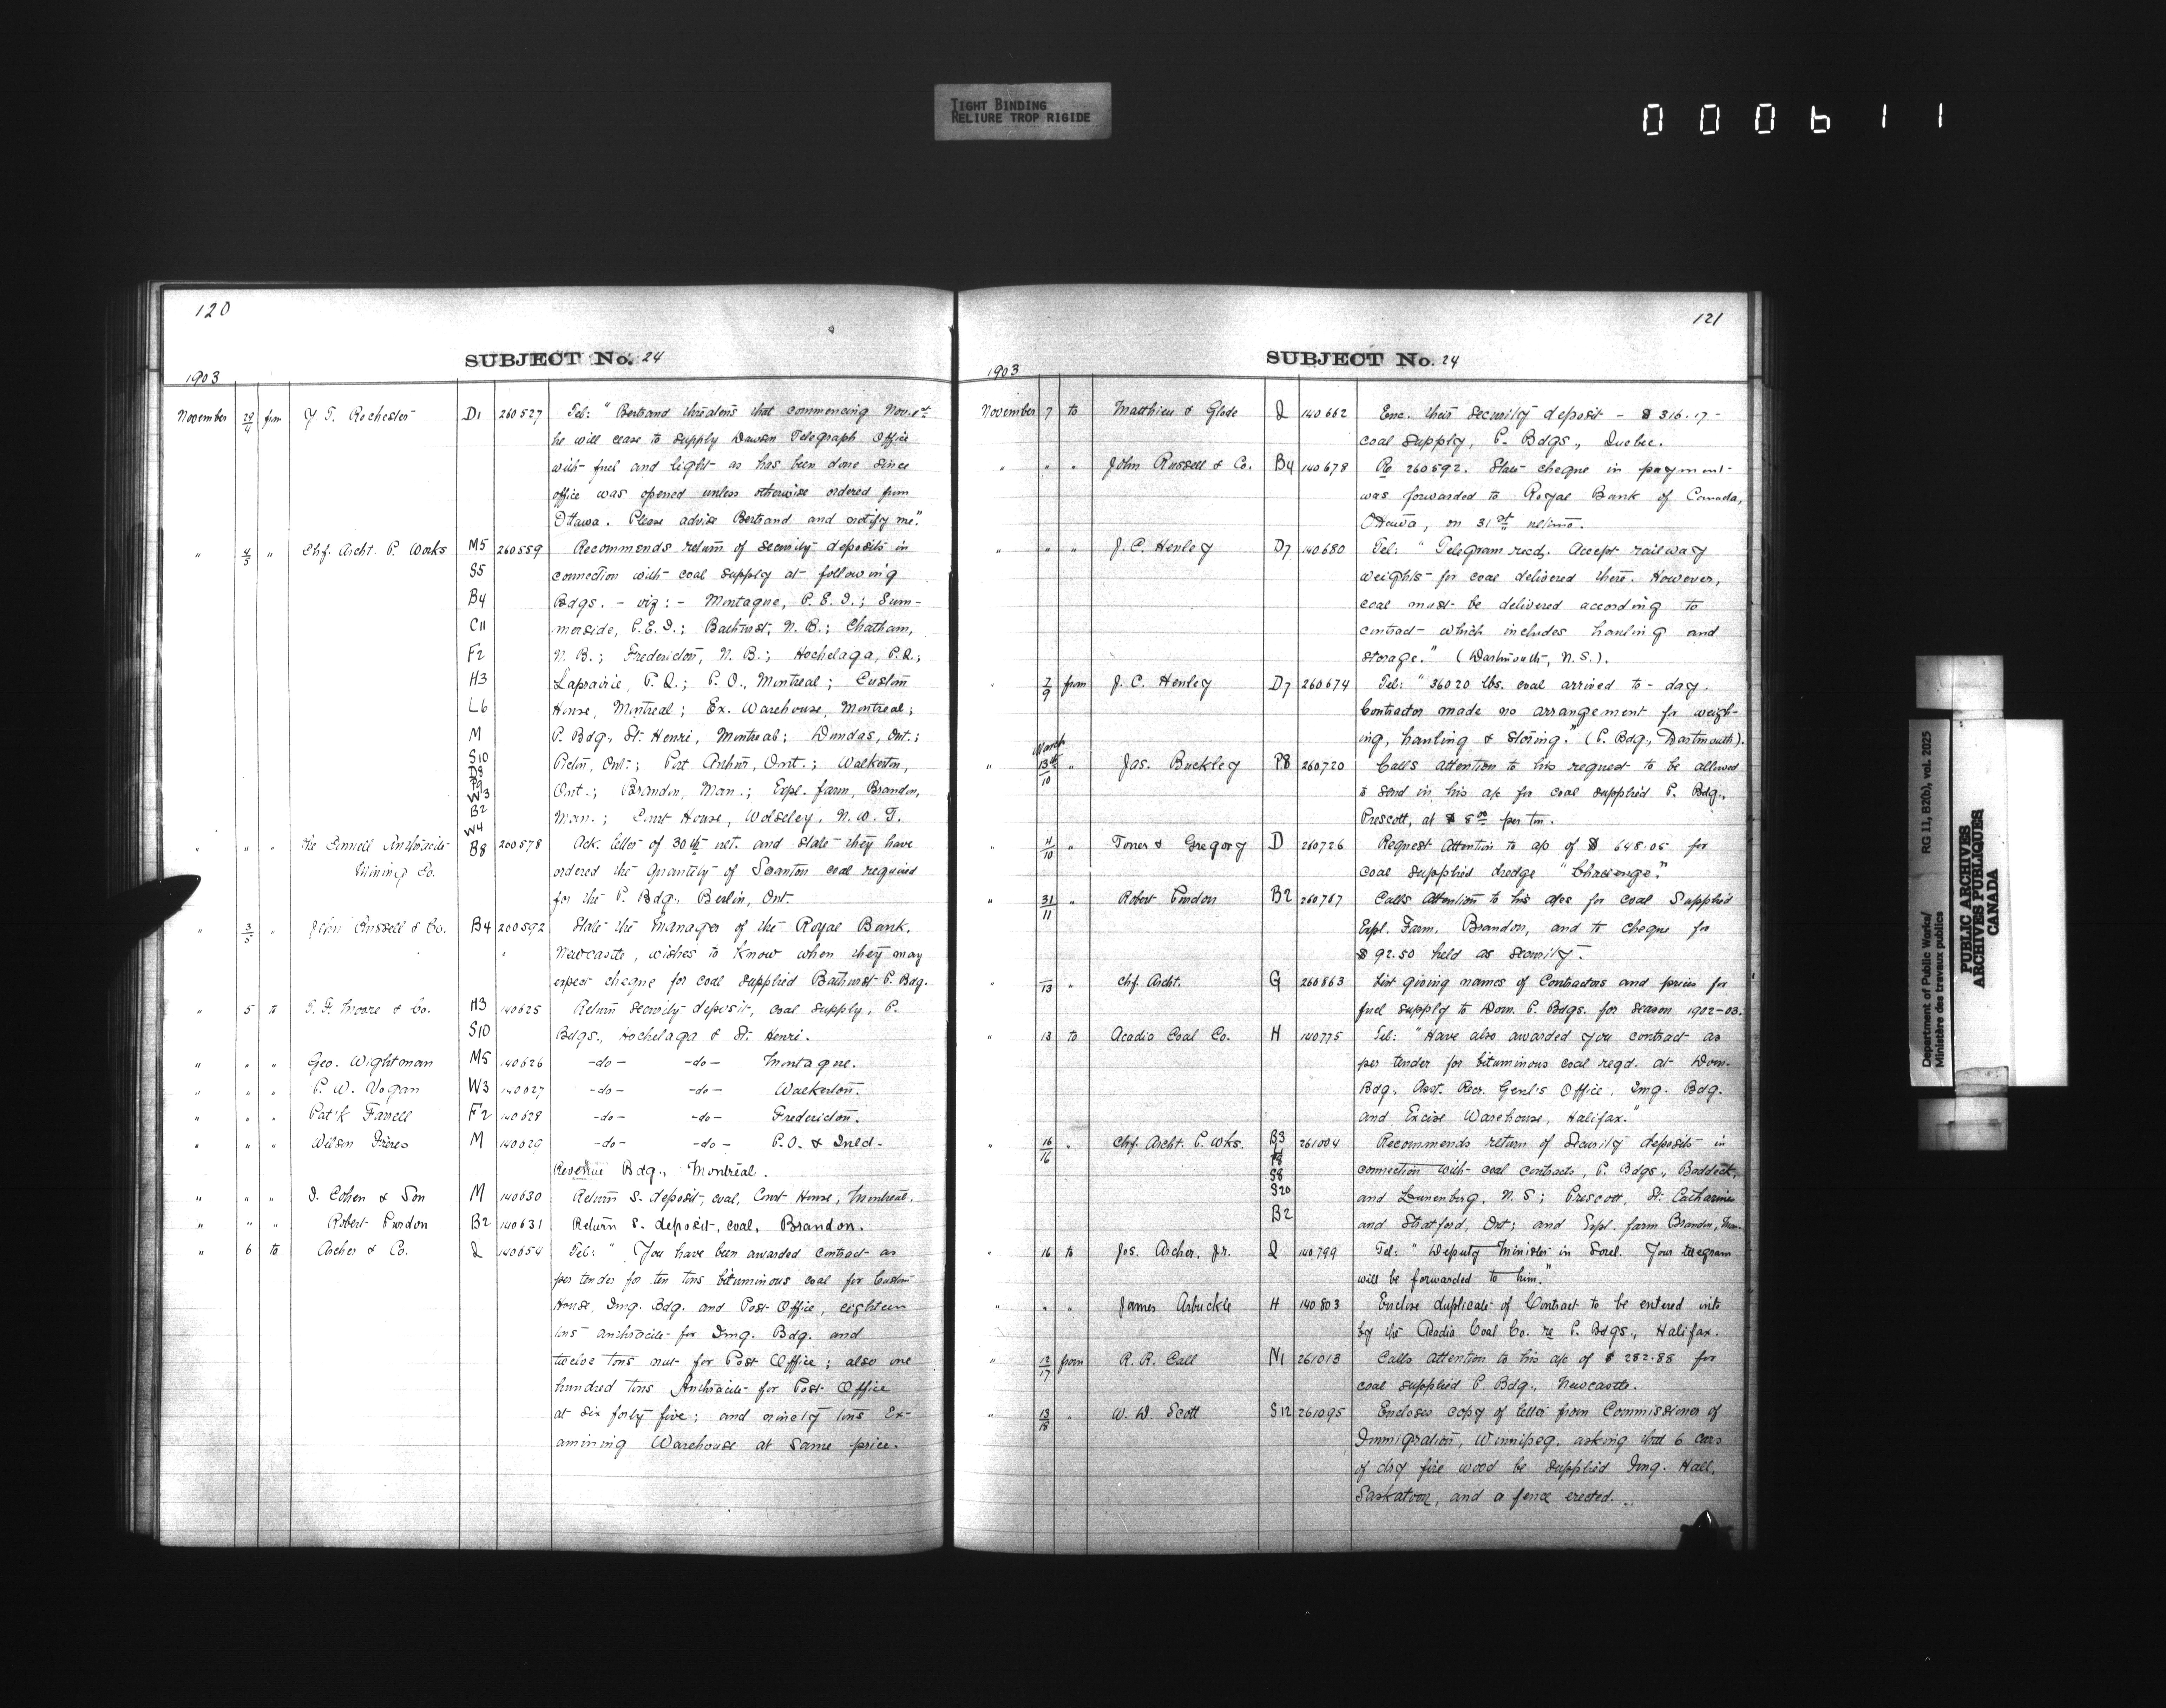 TIGHT BINDING
RELIURE TROP RIGIDE
000611
120
SUBJECT No. 24
1903
November 29/4 from Y. T. Rochester D1 260527 Tel: "Bertrand threatens that commencing Nov. 1st
he will cease to supply Dawson Telegraph Office
with fuel and light as has been done since
office was opened unless otherwise ordered from
Ottawa. Please advise Bertrand and notify me."
" 4/5 " Chf. Archt. P. Works M5 260559 Recommends return of security deposits in
S5 connection with coal supply at following
B4 Bdgs. - viz: - Montague, P.E.I.; Sum-
C11 merside, P.E.I.; Bathurst, N.B.; Chatham,
F2 N.B.; Fredericton, N.B.; Hochelaga, P.Q.;
H3 Laprairie, P.Q.; P.O., Montreal; Custom
L6 House, Montreal; Ex. Warehouse, Montreal;
M P. Bdg., St. Henri, Montreal; Dundas, Ont.;
S10 D8 Picton, Ont.; Port Arthur, Ont.; Walkerton,
P9 W3 Ont.; Brandon, Man.; Expl. farm, Brandon,
B2 Man.; Court House, Wolseley, N.W.T.
W4
" " " the Anthracite B8 260578 Ack. letter of 30th ult. and state they have
Mining Co. ordered the quantity of Scranton coal required
for the P. Bdg., Berlin, Ont.
" 3/5 " John Russell & Co. B4 260592 State the Manager of the Royal Bank,
Newcastle, wishes to know when they may
expect cheque for coal supplied Bathurst P. Bdg.
" 5 to T. F. Moore & Co. H3 140625 Return security deposit, coal supply, P.
S10 Bdgs., Hochelaga & St. Henri.
" " " Geo. Wightman M5 140626 -do- -do- Montague.
" " " P. W. Vogan W3 140627 -do- -do- Walkerton.
" " " Pat'k Farrell F2 140628 -do- -do- Fredericton.
" " " Wilson Frères M 140629 -do- -do- P.O. & Inld.
Revenue Bdg., Montreal.
" " " D. Cohen & Son M 140630 Return S. deposit, coal, Court House, Montreal.
" " " Robert Purdon B2 140631 Return S. deposit, coal, Brandon.
" 6 to Archer & Co. Q 140654 Tel: "You have been awarded contract as
per tender for ten tons bituminous coal for Custom
House, Img. Bdg. and Post Office, eighteen
tons anthracite for Img. Bdg. and
twelve tons nut for Post Office; also one
hundred tons Anthracite for Post Office
at six forty five; and ninety tons Ex-
amining Warehouse at same price.
121
SUBJECT No. 24
1903
November 7 to Matthieu & Glode Q 140662 Enc. their security deposit - $316.17 -
coal supply, P. Bdgs., Quebec.
" " " John Russell & Co. B4 140678 Re 260592. State cheque in payment
was forwarded to Royal Bank of Canada,
Ottawa, on 31st ultimo.
" " " J. C. Henley D7 140680 Tel: "Telegram recd. Accept railway
weights for coal delivered there. However,
coal must be delivered according to
contract which includes hauling and
storage." (Dartmouth, N.S.).
" 7/9 from J. C. Henley D7 260674 Tel: "36020 lbs. coal arrived to-day.
Contractor made no arrangement for weigh-
ing, hauling & storing." (P. Bdg., Dartmouth).
" March 13th/10 " Jas. Buckley P8 260720 Calls attention to his request to be allowed
to send in his a/c for coal supplied P. Bdg.,
Prescott, at $8.00 per ton.
" 4/10 " Toner & Gregory D 260726 Request attention to a/c of $648.05 for
coal supplied dredge "Challenge."
" 31/11 " Robert Purdon B2 260767 Calls attention to his a/cs for coal supplied
Expl. Farm, Brandon, and to cheque for
$92.50 held as security.
" /13 " Chf. Archt. G 260863 List giving names of Contractors and prices for
fuel supply to Dom. P. Bdgs. for season 1902-03.
" 13 to Acadia Coal Co. H 140775 Tel: "Have also awarded you contract as
per tender for bituminous coal reqd. at Dom.
Bdg., Asst. Recr. Genl's Office, Img. Bdg.
and Excise Warehouse, Halifax."
" 16/16 " Chf. Archt. P. Wks. B3 261004 Recommends return of Security deposits in
L P8 connection with coal contracts, P. Bdgs., Baddeck,
S8 S20 and Lunenberg, N.S.; Prescott, St. Catharines
B2 and Stratford, Ont; and Expl. farm Brandon, Man.
" 16 to Jos. Archer, Jr. Q 140799 Tel: "Deputy Minister in Sorel. Your telegram
will be forwarded to him."
" " " James Arbuckle H 140803 Enclose duplicate of Contract to be entered into
by the Acadia Coal Co. re P. Bdgs., Halifax.
" 12/17 from R. R. Call N1 261013 Calls attention to his a/c of $282.88 for
coal supplied P. Bdg., Newcastle.
" 13/18 " W. D. Scott S12 261095 Encloses copy of letter from Commissioner of
Immigration, Winnipeg, asking that 6 cars
of dry fire wood be supplied Img. Hall,
Saskatoon, and a fence erected.
Department of Public Works/ RG 11, B2(b), vol. 2025
Ministère des travaux publics
PUBLIC ARCHIVES
ARCHIVES PUBLIQUES
CANADA